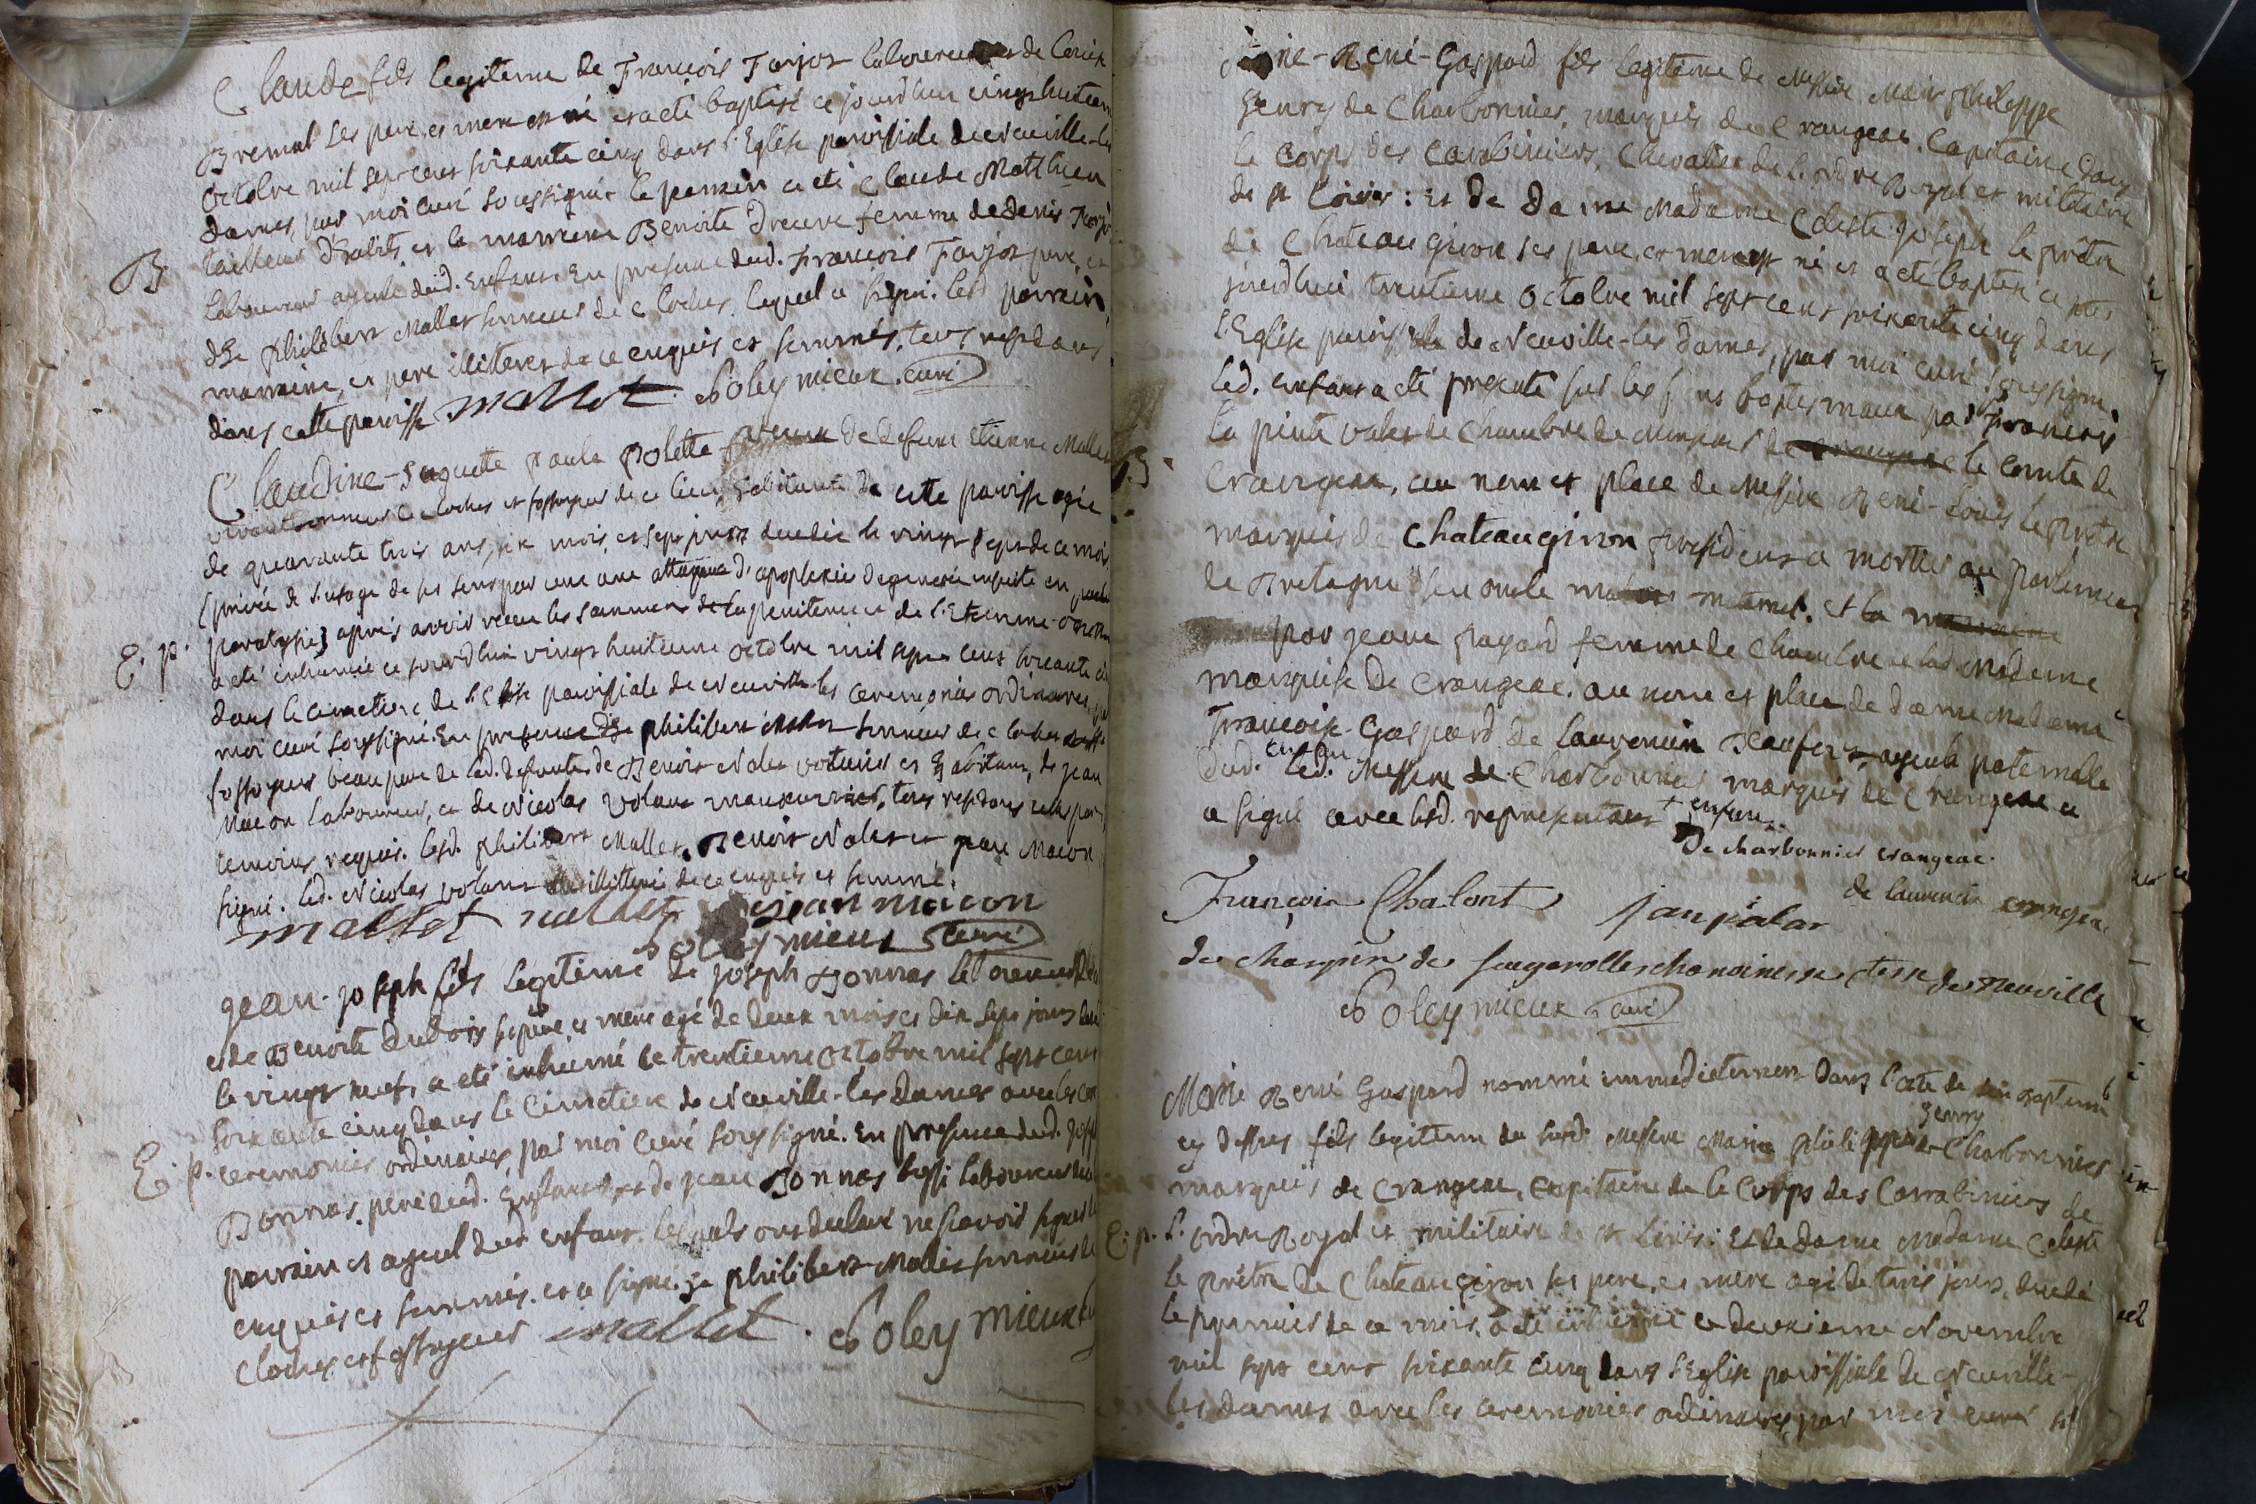 Claude fils legitime de François Farjot laboureur et de Louise
Bremal ses pere et mere est né et a eté baptisé ce jourdhui vingt huitieme
octobre mil sept cens soixante cinq dans l'Eglise paroissiale de Neuville-les
dames, par moi curé soussigné le parrain a eté Claude Matthieu
B
tailleur d'habits, et la marraine Benoite Dreure femme de denis Farjot
laboureur ayeule dud. enfant. En presence dud. François Farjot pere, et
de philibert Mallet sonneur de cloches, lequel a signé. lesd parrain,
marraine, et pere illitterés de ce enquis et sommés, tous residans
dans cette paroisse Mallet Soleymieux, curé
Claudine-huguette paule Polette veuve de defunt Etienne Mallet
vivant sonneur de cloches et fossoyeur de ce lieu, habitante de cette paroisse agée
de quarante trois ans, six mois, et sept jours decedée le vingt sept de ce mois
(privée de l'usage de ses sens par une attaque d'apoplexie degenerée ensuite en
E. p.
paralysie) aprés avoir recu les sacremens de la penitence de l'Extreme-onction
a eté inhumée ce jourdhui vingt huitieme octobre mil sept cens soixante cinq
dans le cimetiere de l'Eglise paroissiale de Neuville les ceremonies ordinaires, par
moi curé soussigné. En presence de philibert Mallet sonneur de cloches
fossoyeur beau pere de lad. defunte, de Benoit Nalet voiturier et habitant, de jean
Macon laboureur, et de Nicolas volant manouvrier, tous residans
temoins requis. lesd. philibert Mallet, Benoit Nalet et jean Macon
signé. led. Nicolas volant illitteré de ce enquis et sommé.
mallet nallet jean macon
Soleymieux curé
jean-joseph fils legitime de joseph Bonnas laboureur
et de Benoite Dubois ses pere et mere agé de deux mois et dix sept jours
le vingt neuf, a eté inhumé ce trentieme octobre mil sept cens
soixante cinq dans le cimetiere de Neuville-les Dames avec les
E. p.
ceremonies ordinaires, par moi curé soussigné. En presence dud. joseph
Bonnas, pere dud. enfant et de jean Bonnas aussi laboureur
parrain et ayeul dud enfant. lesquels ont declaré ne sçavoir signer
enquis et sommés. et a signé philibert Mallet sonneur de
cloches et fossoyeur Mallet. Soleymieux
-René-Gaspard fils legitime de Messire Marie philippe
henry de Charbonnier, marquis de Crangeac, Capitaine dans
le corps des carabiniers, Chevalier de l'ordre Royal et militaire
de St Loüis: et de dame Madame Celeste joseph le prêtre
de Chateaugiron ses pere et mere est né et a eté baptisé ce
jourdhui trentieme octobre mil sept cens soixante cinq dans
l'Eglise paroissiale de Neuville-les dames, par moi curé soussigné.
led. enfant a eté presenté sur les fons baptismaux par françois
la pinte valet de chambre de Monsieur de le comte de
Crangeac, au nom et place de Messire René-Loüis le prêtre
marquis de Chateaugiron president a mortier au parlement
de Bretagne son oncle maternel. et la
par jeanne payard femme de chambre de lad. Madame
marquise de Crangeac. au nom et place de dame Madame
Françoise-Gaspard de Laurencin Beaufort, ayeule paternelle
dud. enfant led. Messire de Charbonnier marquis de Crangeac
a signé avec lesd. representans + enfant.
de charbonnier crangeac.
François Chalont jean palar de laurencin crangeac
de charpin de feugerolles chanoinesse ctesse de Neuville
Soleymieux curé
Marie René Gaspard nommé immediatement dans l'acte de son baptême
henry
cy dessus fils legitime du susd. Messire Marie philippe de Charbonnier
marquis de Crangeac, capitaine de le corps des Carabiniers de
E. p.
l'ordre Royal et militaire de St Loüis: et de dame Madame Celeste
le prêtre de Chateaugiron ses pere et mere agé de trois jours, decedé
le premier de ce mois, a eté inhumé ce deuxieme Novembre
mil sept cens soixante cinq dans l'Eglise paroissiale de Neuville-
les dames avec les ceremonies ordinaires, par moi curé